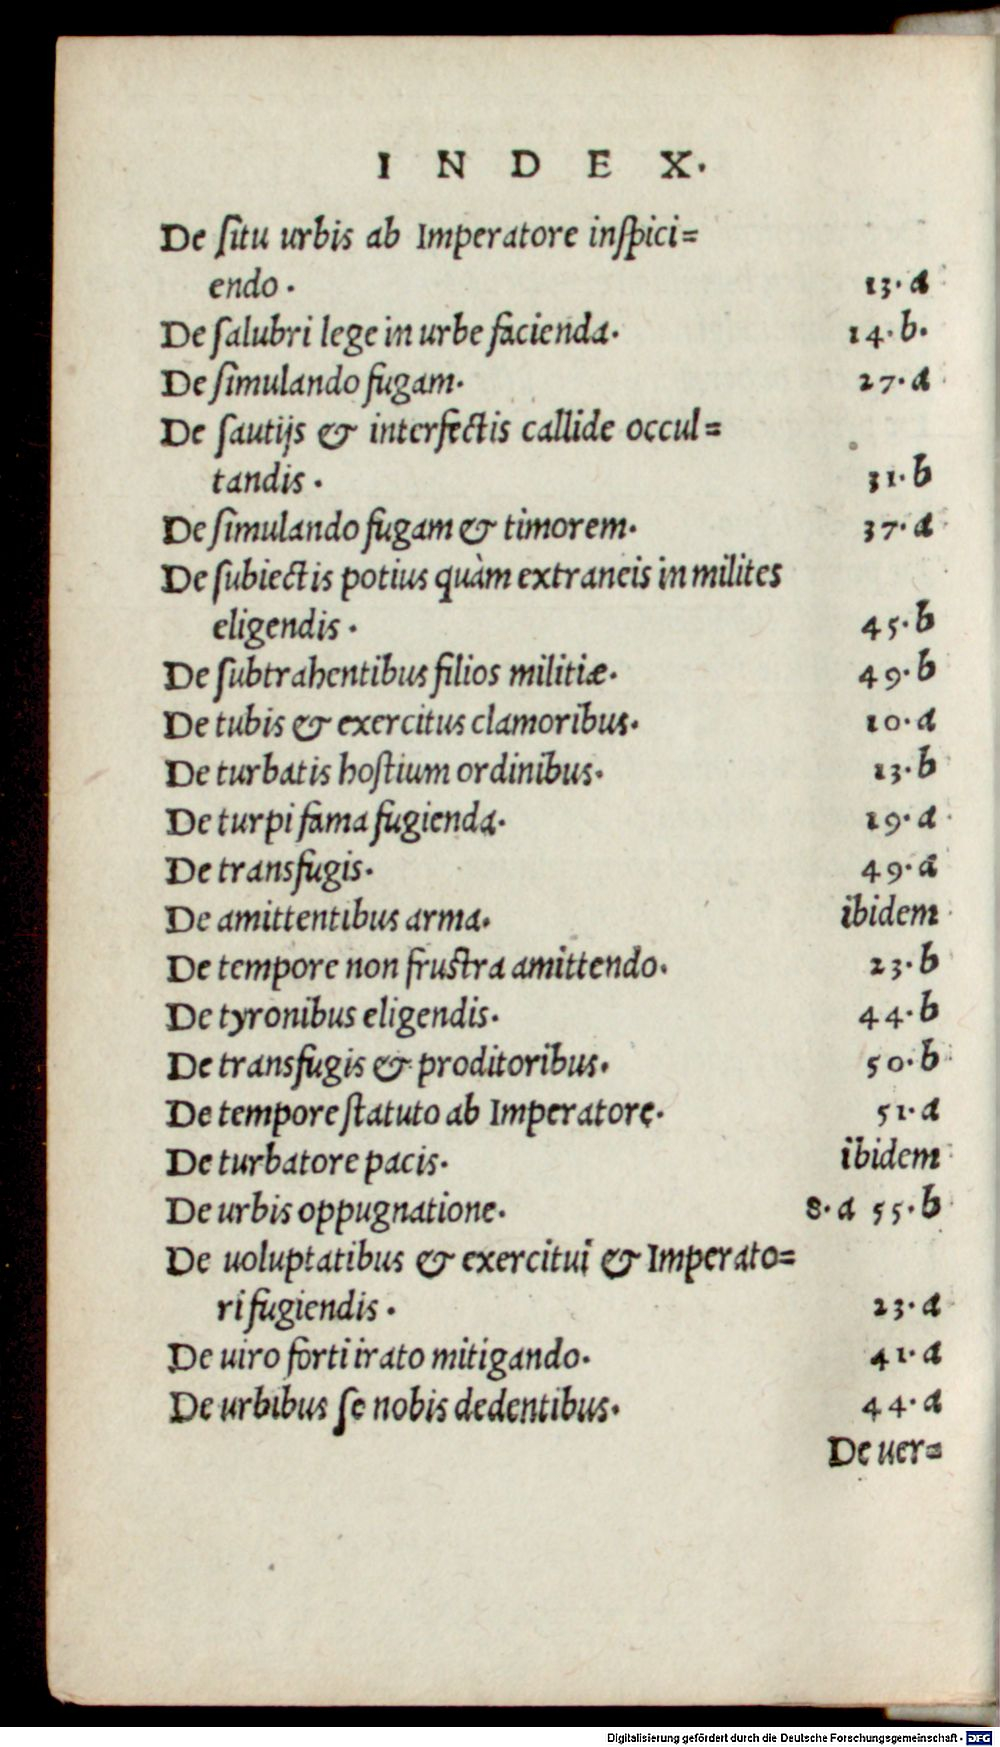 INDEX.
De ſitu urbis ab Imperatore inſpici=
endo. 13. a
De ſalubri lege in urbe facienda. 14. b.
De ſimulando fugam. 27. a
De ſautijs & interfectis callide occul=
tandis. 31. b
De ſimulando fugam & timorem. 37. a
De ſubiectis potius quàm extraneis in milites
eligendis. 45. b
De ſubtrahentibus filios militiæ. 49. b
De tubis & exercitus clamoribus. 10. a
De turbatis hoſtium ordinibus. 13. b
De turpi fama fugienda. 19. a
De transfugis. 49. a
De amittentibus arma. ibidem
De tempore non fruſtra amittendo. 23. b
De tyronibus eligendis. 44. b
De transfugis & proditoribus. 50. b
De tempore ſtatuto ab Imperatore. 51. a
De turbatore pacis. ibidem
De urbis oppugnatione. 8. a 55. b
De uoluptatibus & exercitui & Imperato=
ri fugiendis. 23. a
De uiro forti irato mitigando. 41. a
De urbibus ſe nobis dedentibus. 44. a
De uer=
Digitalisierung gefördert durch die Deutsche Forschungsgemeinschaft - DFG